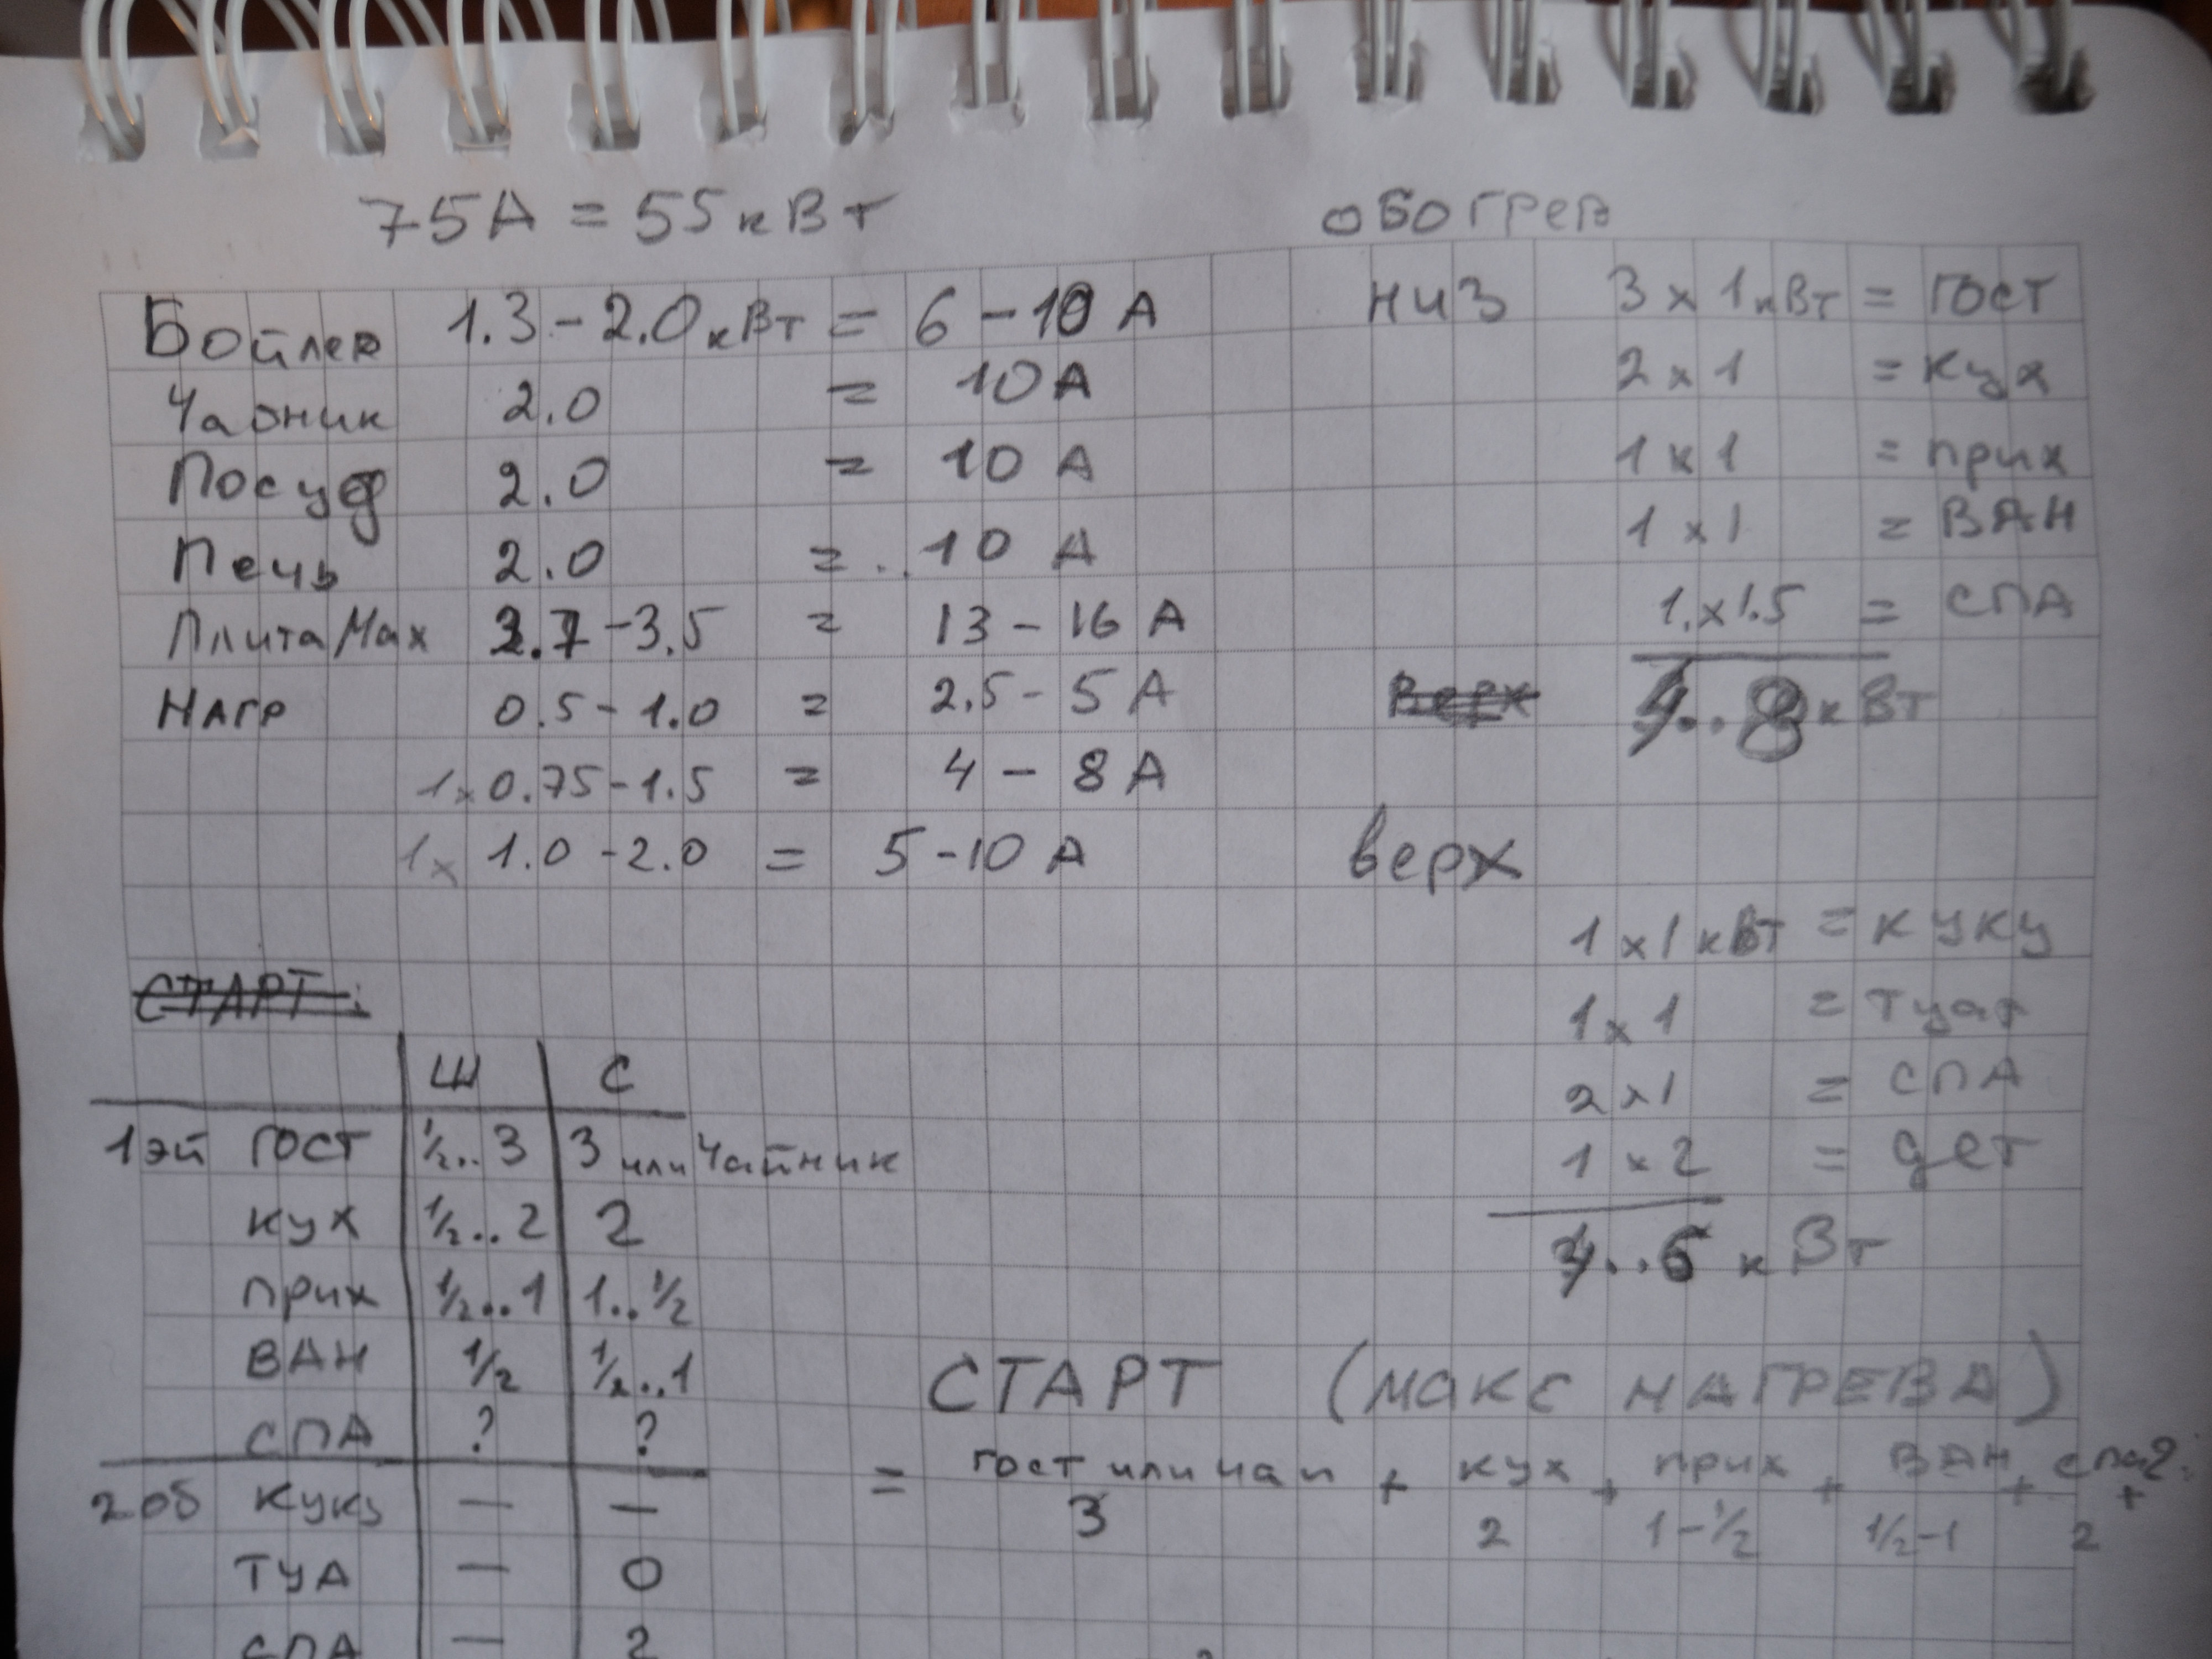 75А = 55 кВт
Бойлер 1.3 - 2.0 кВт = 6 - 10 А
Чайник 2.0 = 10 А
Посуд 2.0 = 10 А
Печь 2.0 = 10 А
Плита Max 2.7 - 3.5 = 13 - 16 А
НАГР 0.5 - 1.0 = 2.5 - 5 А
1x 0.75 - 1.5 = 4 - 8 А
1x 1.0 - 2.0 = 5 - 10 А
обогрев
низ 3 x 1 кВт = гост
2 x 1 = кух
1 x 1 = прих
1 x 1 = ВАН
1. x 1.5 = СПА
Верх
4..8 кВт
верх
1 x 1 кВт = куку
1 x 1 = туал
2 x 1 = СПА
1 x 2 = дет
..6 кВт
СТАРТ:
Ш С
1эй ГОСТ 1/2..3 3 или Чайник
кух 1/2..2 2
прих 1/2..1 1..1/2
ВАН 1/2 1/2..1
СПА ? ?
2об куку — —
ТУА — 0
СПА — 2
СТАРТ (МАКС НАГРЕВА)
= гост или чай + кух + прих + ВАН + спа2. +
3 2 1-1/2 1/2-1 2